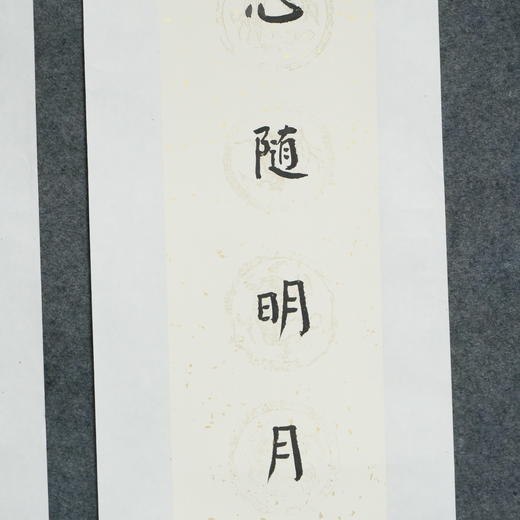 心随明月